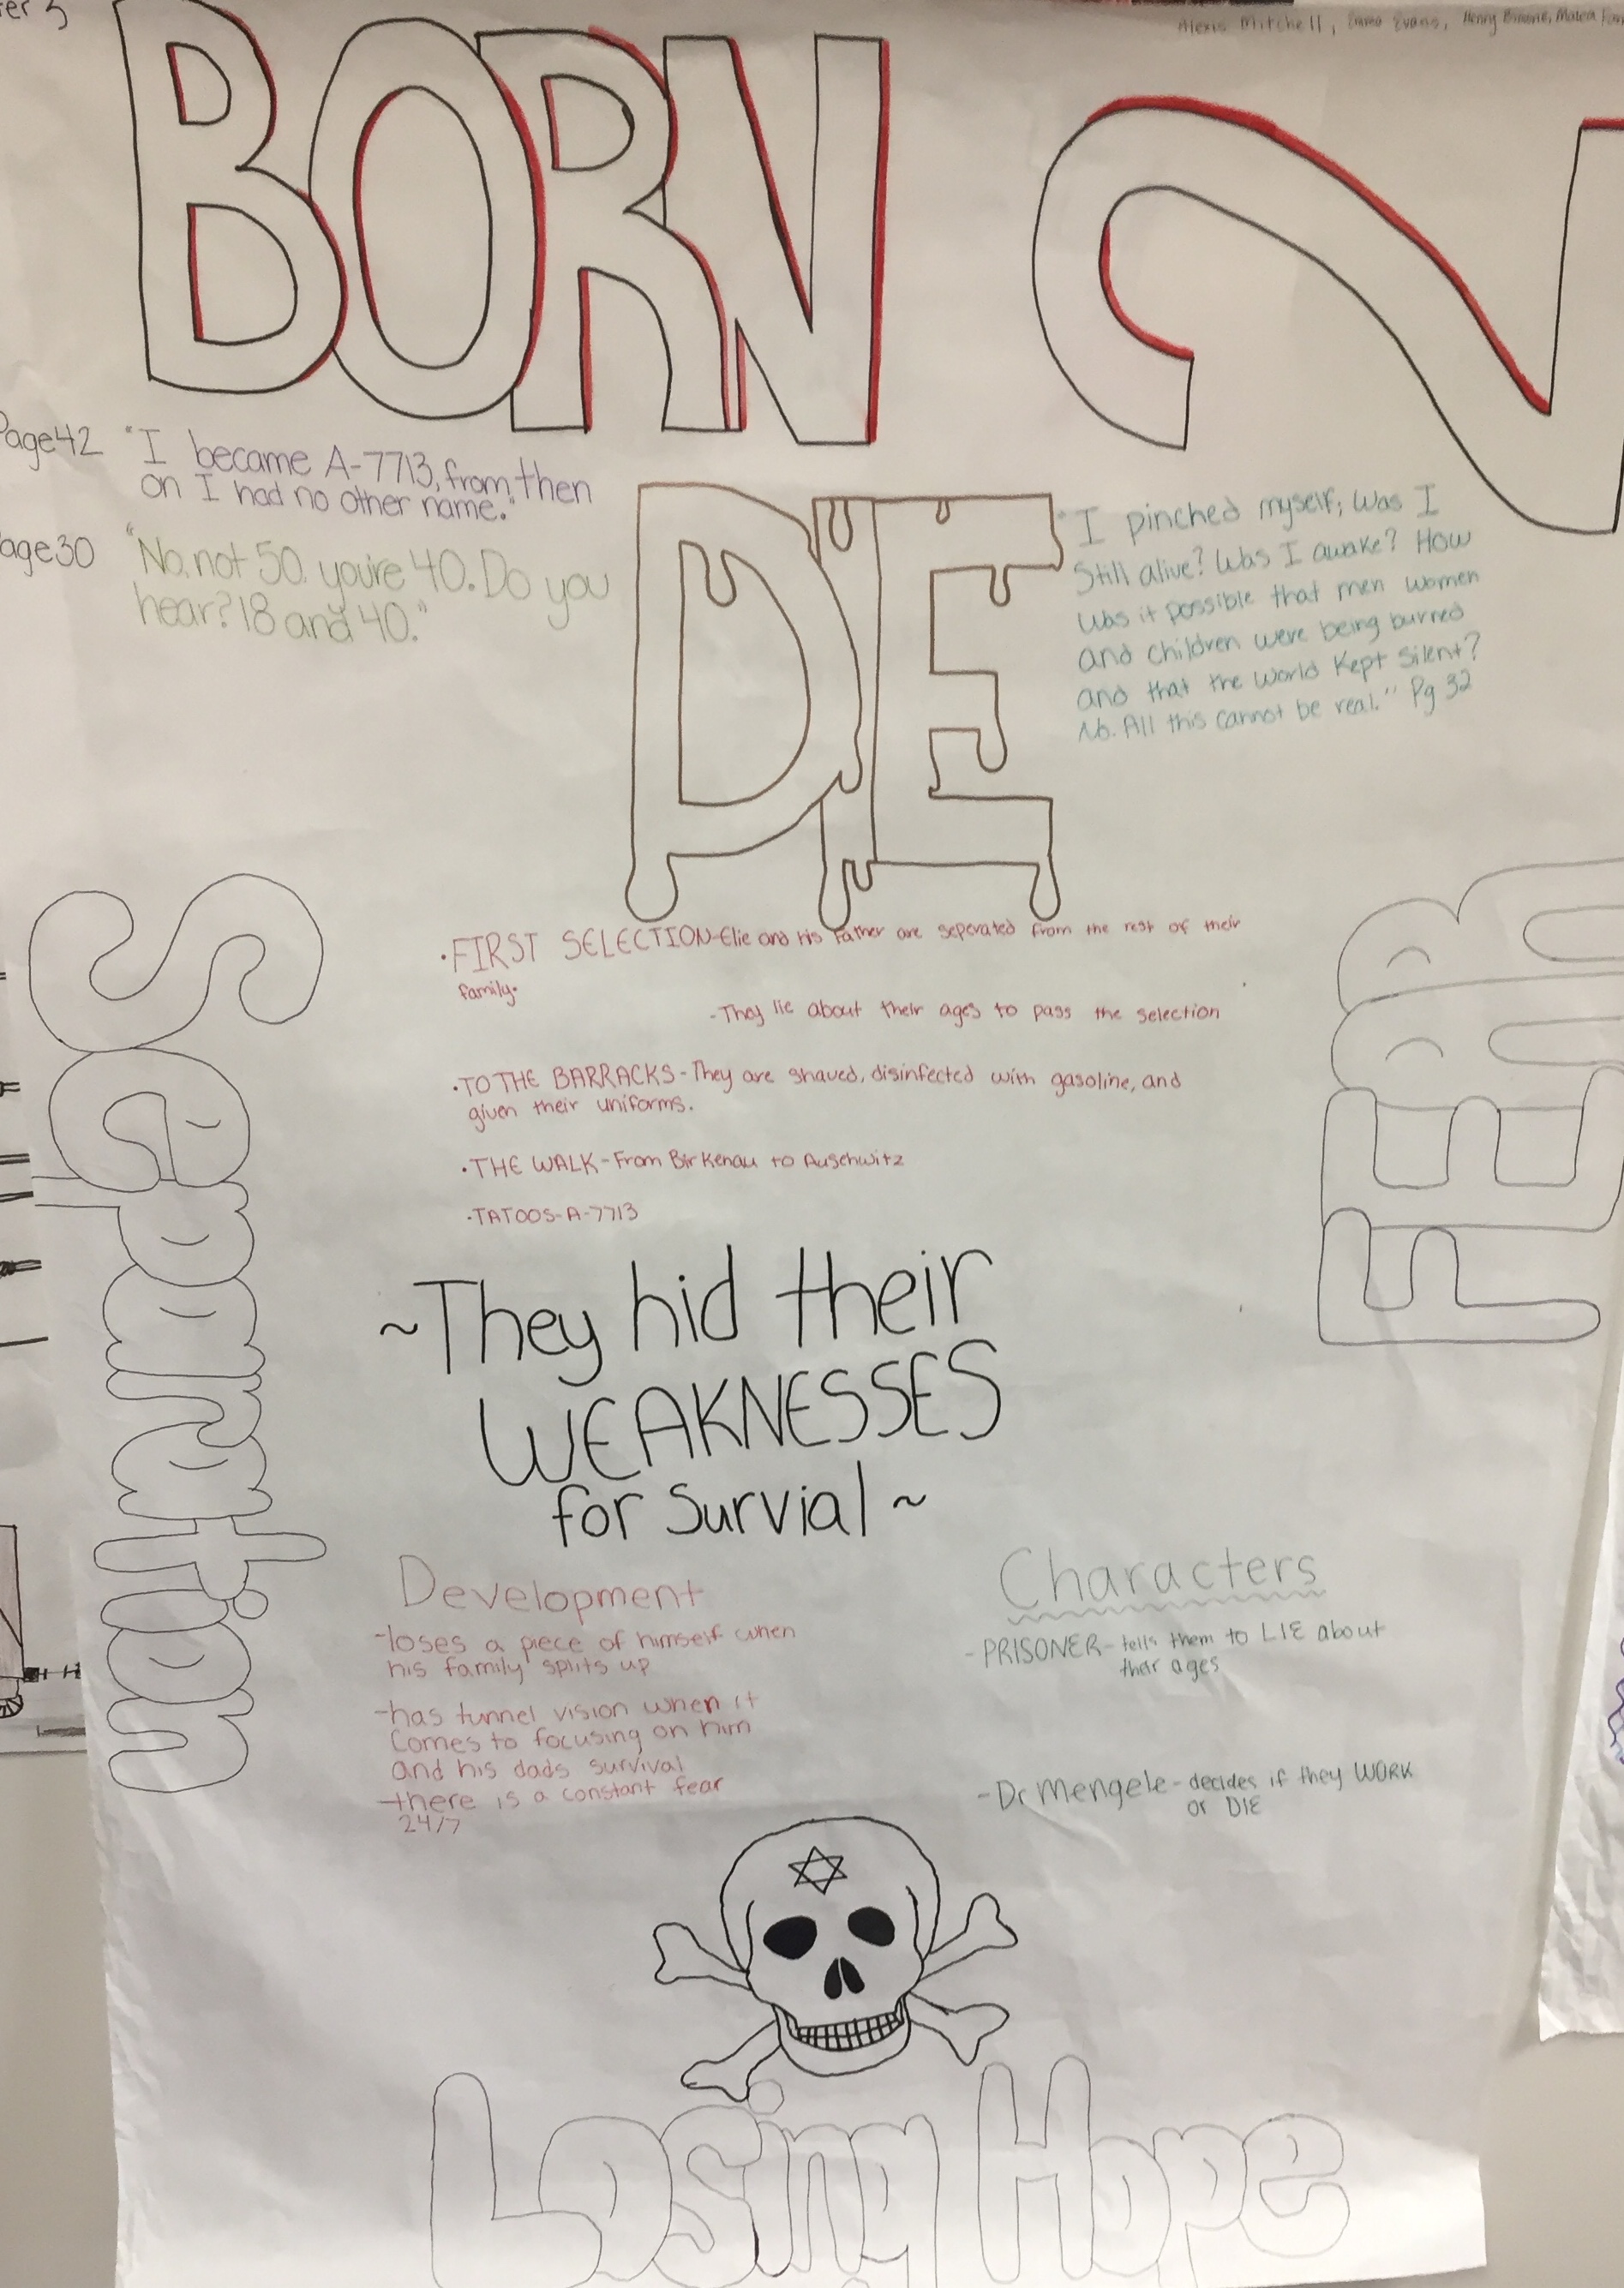 er 3
Alexis Mitchell, Emma Evans, Henry
BORN 2
Page 42 "I became A-7713, from then
on I had no other name."
age 30 "No, not 50. you're 40. Do you
hear? 18 and 40."
DIE
"I pinched myself; Was I
Still alive? Was I awake? How
Was it possible that men women
and children were being burned
and that the World Kept Silent?
No. All this cannot be real." Pg 32
Seperation
FEAR
•FIRST SELECTION-Elie and his Father are seperated from the rest of their
family.
-They lie about their ages to pass the selection
•TO THE BARRACKS-They are shaved, disinfected with gasoline, and
given their uniforms.
•THE WALK-From Birkenau to Auschwitz
•TATOOS-A-7713
~They hid their
WEAKNESSES
for Survial~
Development
-loses a piece of himself when
his family splits up
-has tunnel vision when it
comes to focusing on him
and his dads survival
-there is a constant fear
24/7
Characters
-PRISONER-tells them to LIE about
their ages
-Dr Mengele-decides if they WORK
or DIE
Losing Hope